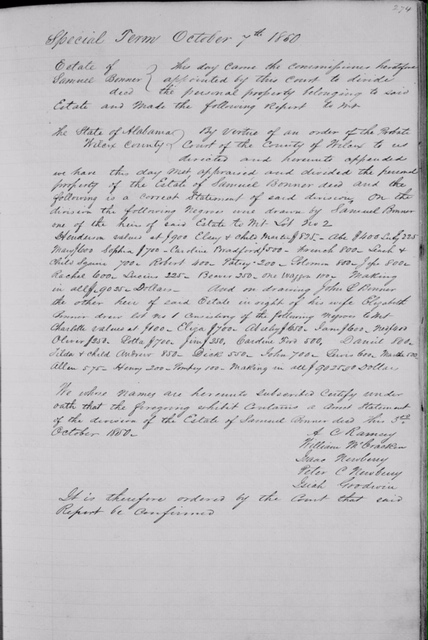 274
Special Term October 7th 1850
Estate of This day came the Commissioners heretofore
Samuel Bonner appointed by this Court to divide
decd the personal property belonging to said
Estate and Made the following Report to Wit
The State of Alabama By Vertue of an order of the Probate
Wilcox County Court of the County of Wilcox to us
directed and hereunto appended
we have this day Met appraised and divided the personal
property of the Estate of Samuel Bonner decd and the
following is a correct Statement of said division On the
division the following Negroes were drawn by Samuel Bonner
one of the heirs of said Estate to Wit Lot No 2
Henderson values at $900 Clary & child $825 Abe $400
Mary $600 Sophia $700 Caroline Bradford $500 Hannah 800
Child 700 Robert 400 Patsy 200 800 800
Rachel 600 Lucius 225 250 one Waggon Making
in all $9025 Dollars And on drawing John C Bonner
the other heir of said Estate in right of his wife Elizabeth
Bonner drew Lot No 1 Consisting of the following Negroes to Wit
Charlotte values at $400 Eliza $700 $650 Sam $600
Oliver $250 $700 Jim $350 Caroline 500, Daniel 800
Tilda & Child 850 Dick 550 John 700 600 Martha 500
Allen 575 Henry 200 100 Making in all $9025.00 Dollars
We whose names are hereunto subscribed Certify under
oath that the foregoing Contains a Statement
of the division of the Estate of Samuel Bonner decd this
October 1850
A C Ramsey
William McCracken
Isaac Newberry
Peter C Newberry
Goodwin
It is therefore ordered by the Court that said
Report be Confirmed